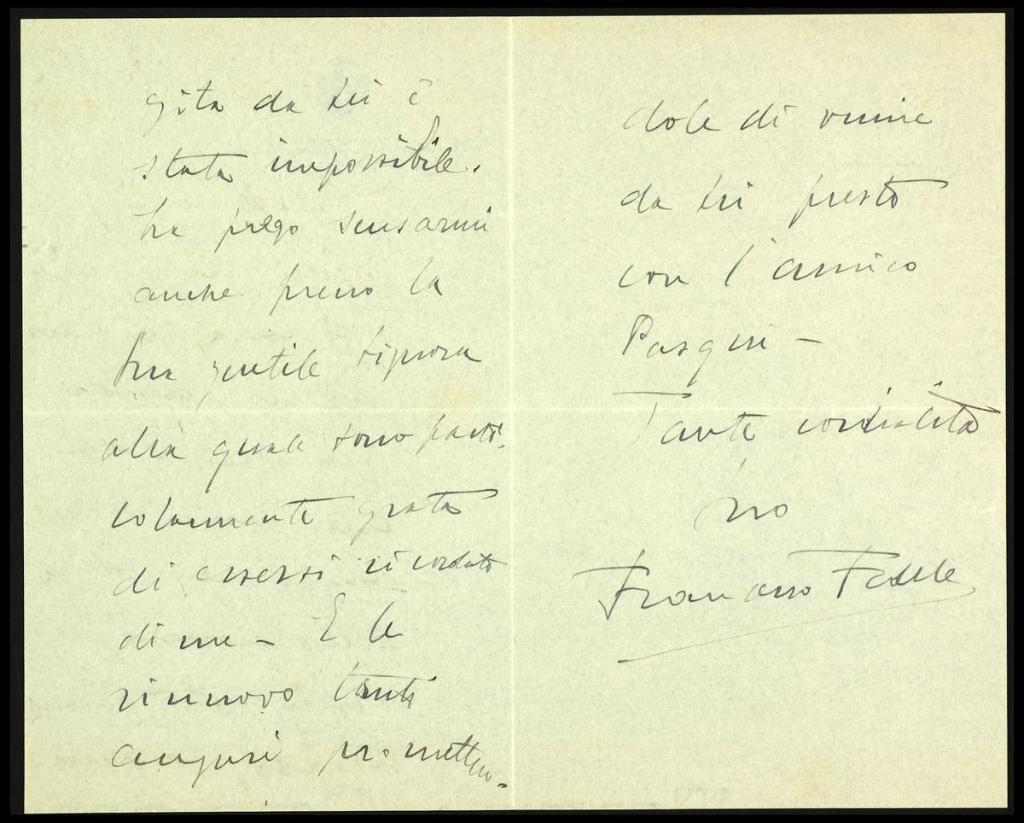 gita da Lei è
stata impossibile.
La prego scusarmi
anche presso la
Sua gentile Signora
alla quale sono parti-
colarmente grato
di essersi ricordata
di me – E le
rinnovo tanti
auguri prometten-
dole di venire
da Lei presto
con l'amico
Pasqui –
Tante cordialità
suo
Francesco